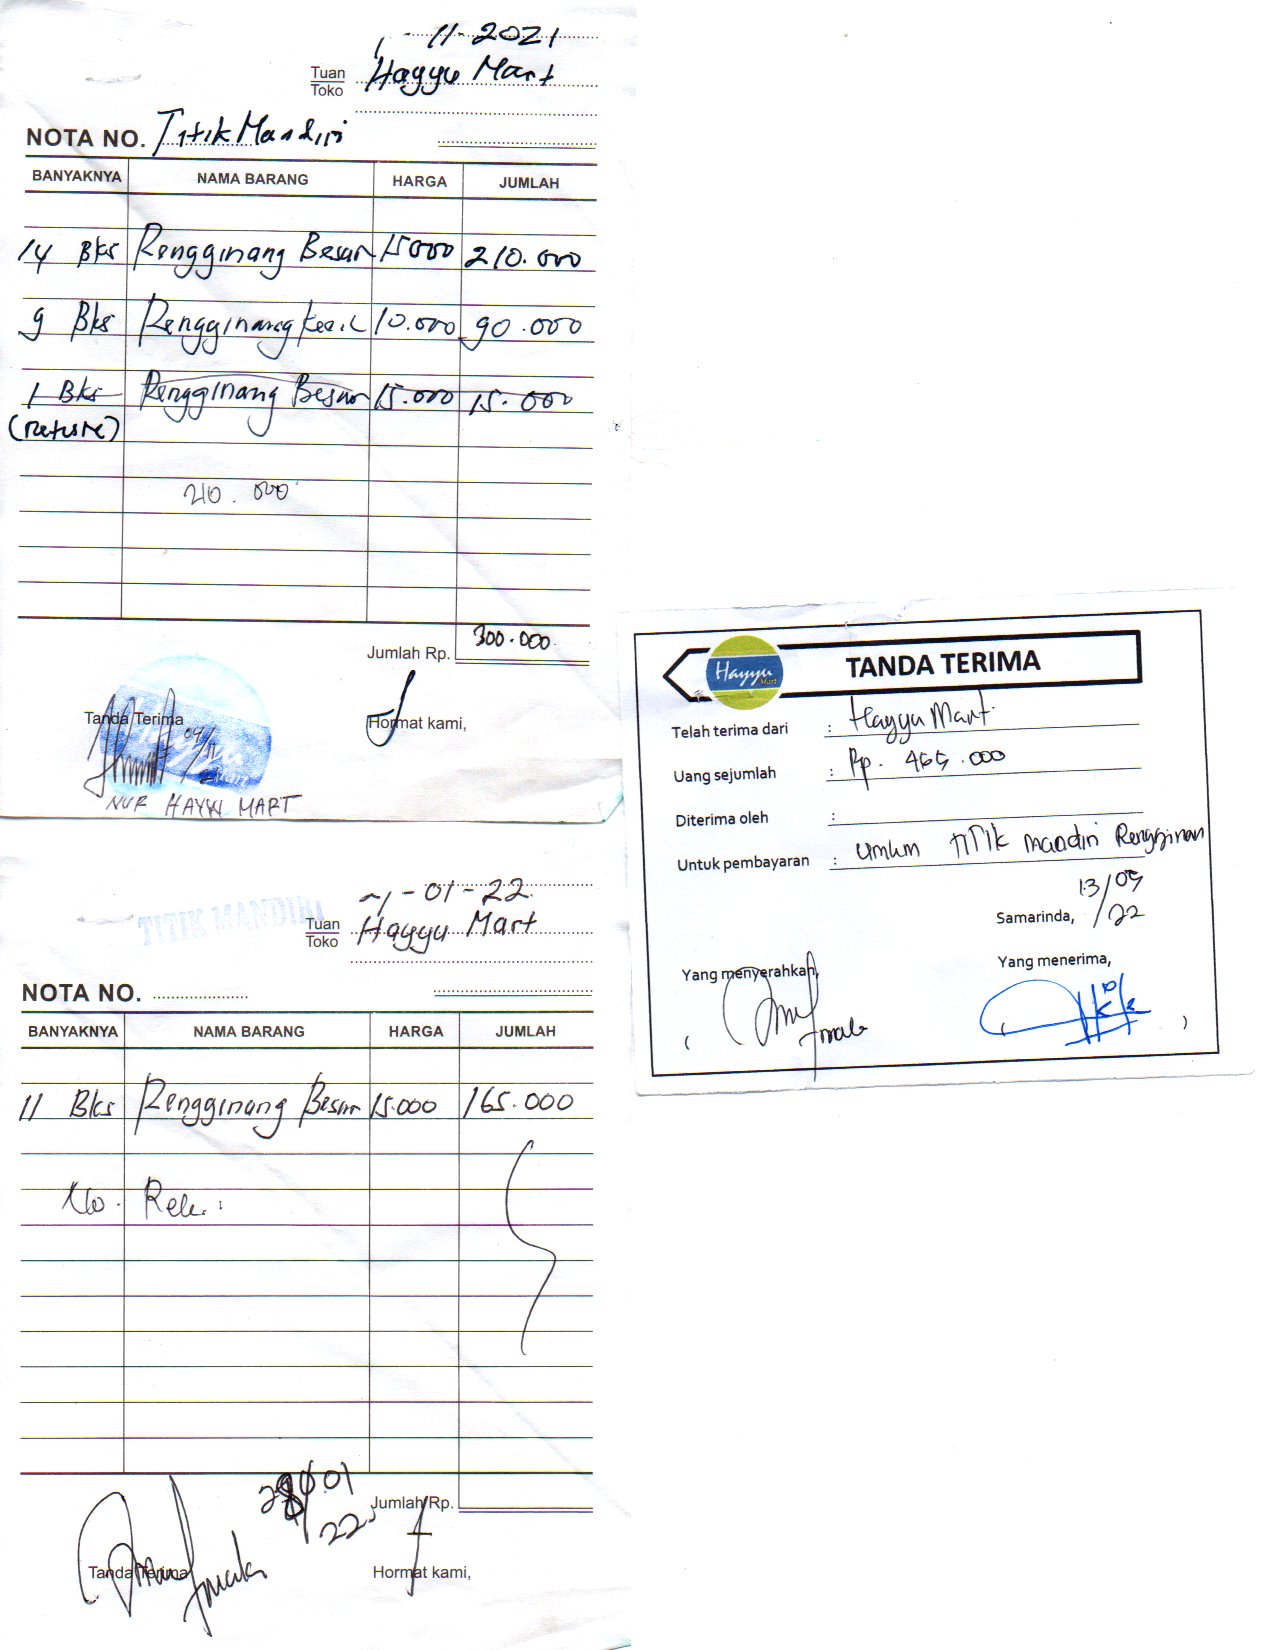 -11-2021
Tuan
Toko
Hayyu Mart
NOTA NO. Titik Mandiri
BANYAKNYA NAMA BARANG HARGA JUMLAH
14 Bks Rengginang Besar 15000 210.000
9 Bks Rengginang Kecil 10.000 90.000
1 Bks Rengginang Besar 15.000 15.000
(Reture)
210.000
Jumlah Rp. 300.000
Tanda Terima Hormat kami,
09/11
NUR HAYYU MART
TITIK MANDIRI
-01-22
Tuan
Toko
Hayyu Mart
NOTA NO.
BANYAKNYA NAMA BARANG HARGA JUMLAH
11 Bks Rengginang Besar 15.000 165.000
No. Rek. :
01
22
Jumlah Rp.
Tanda Terima Hormat kami,
Hayyu Mart
TANDA TERIMA
Telah terima dari : Hayyu Mart
Uang sejumlah : Rp. 465.000
Diterima oleh :
Untuk pembayaran : umkm TITIK mandiri Rengginan
Samarinda, 13/05/22
Yang menyerahkan, Yang menerima,
( )